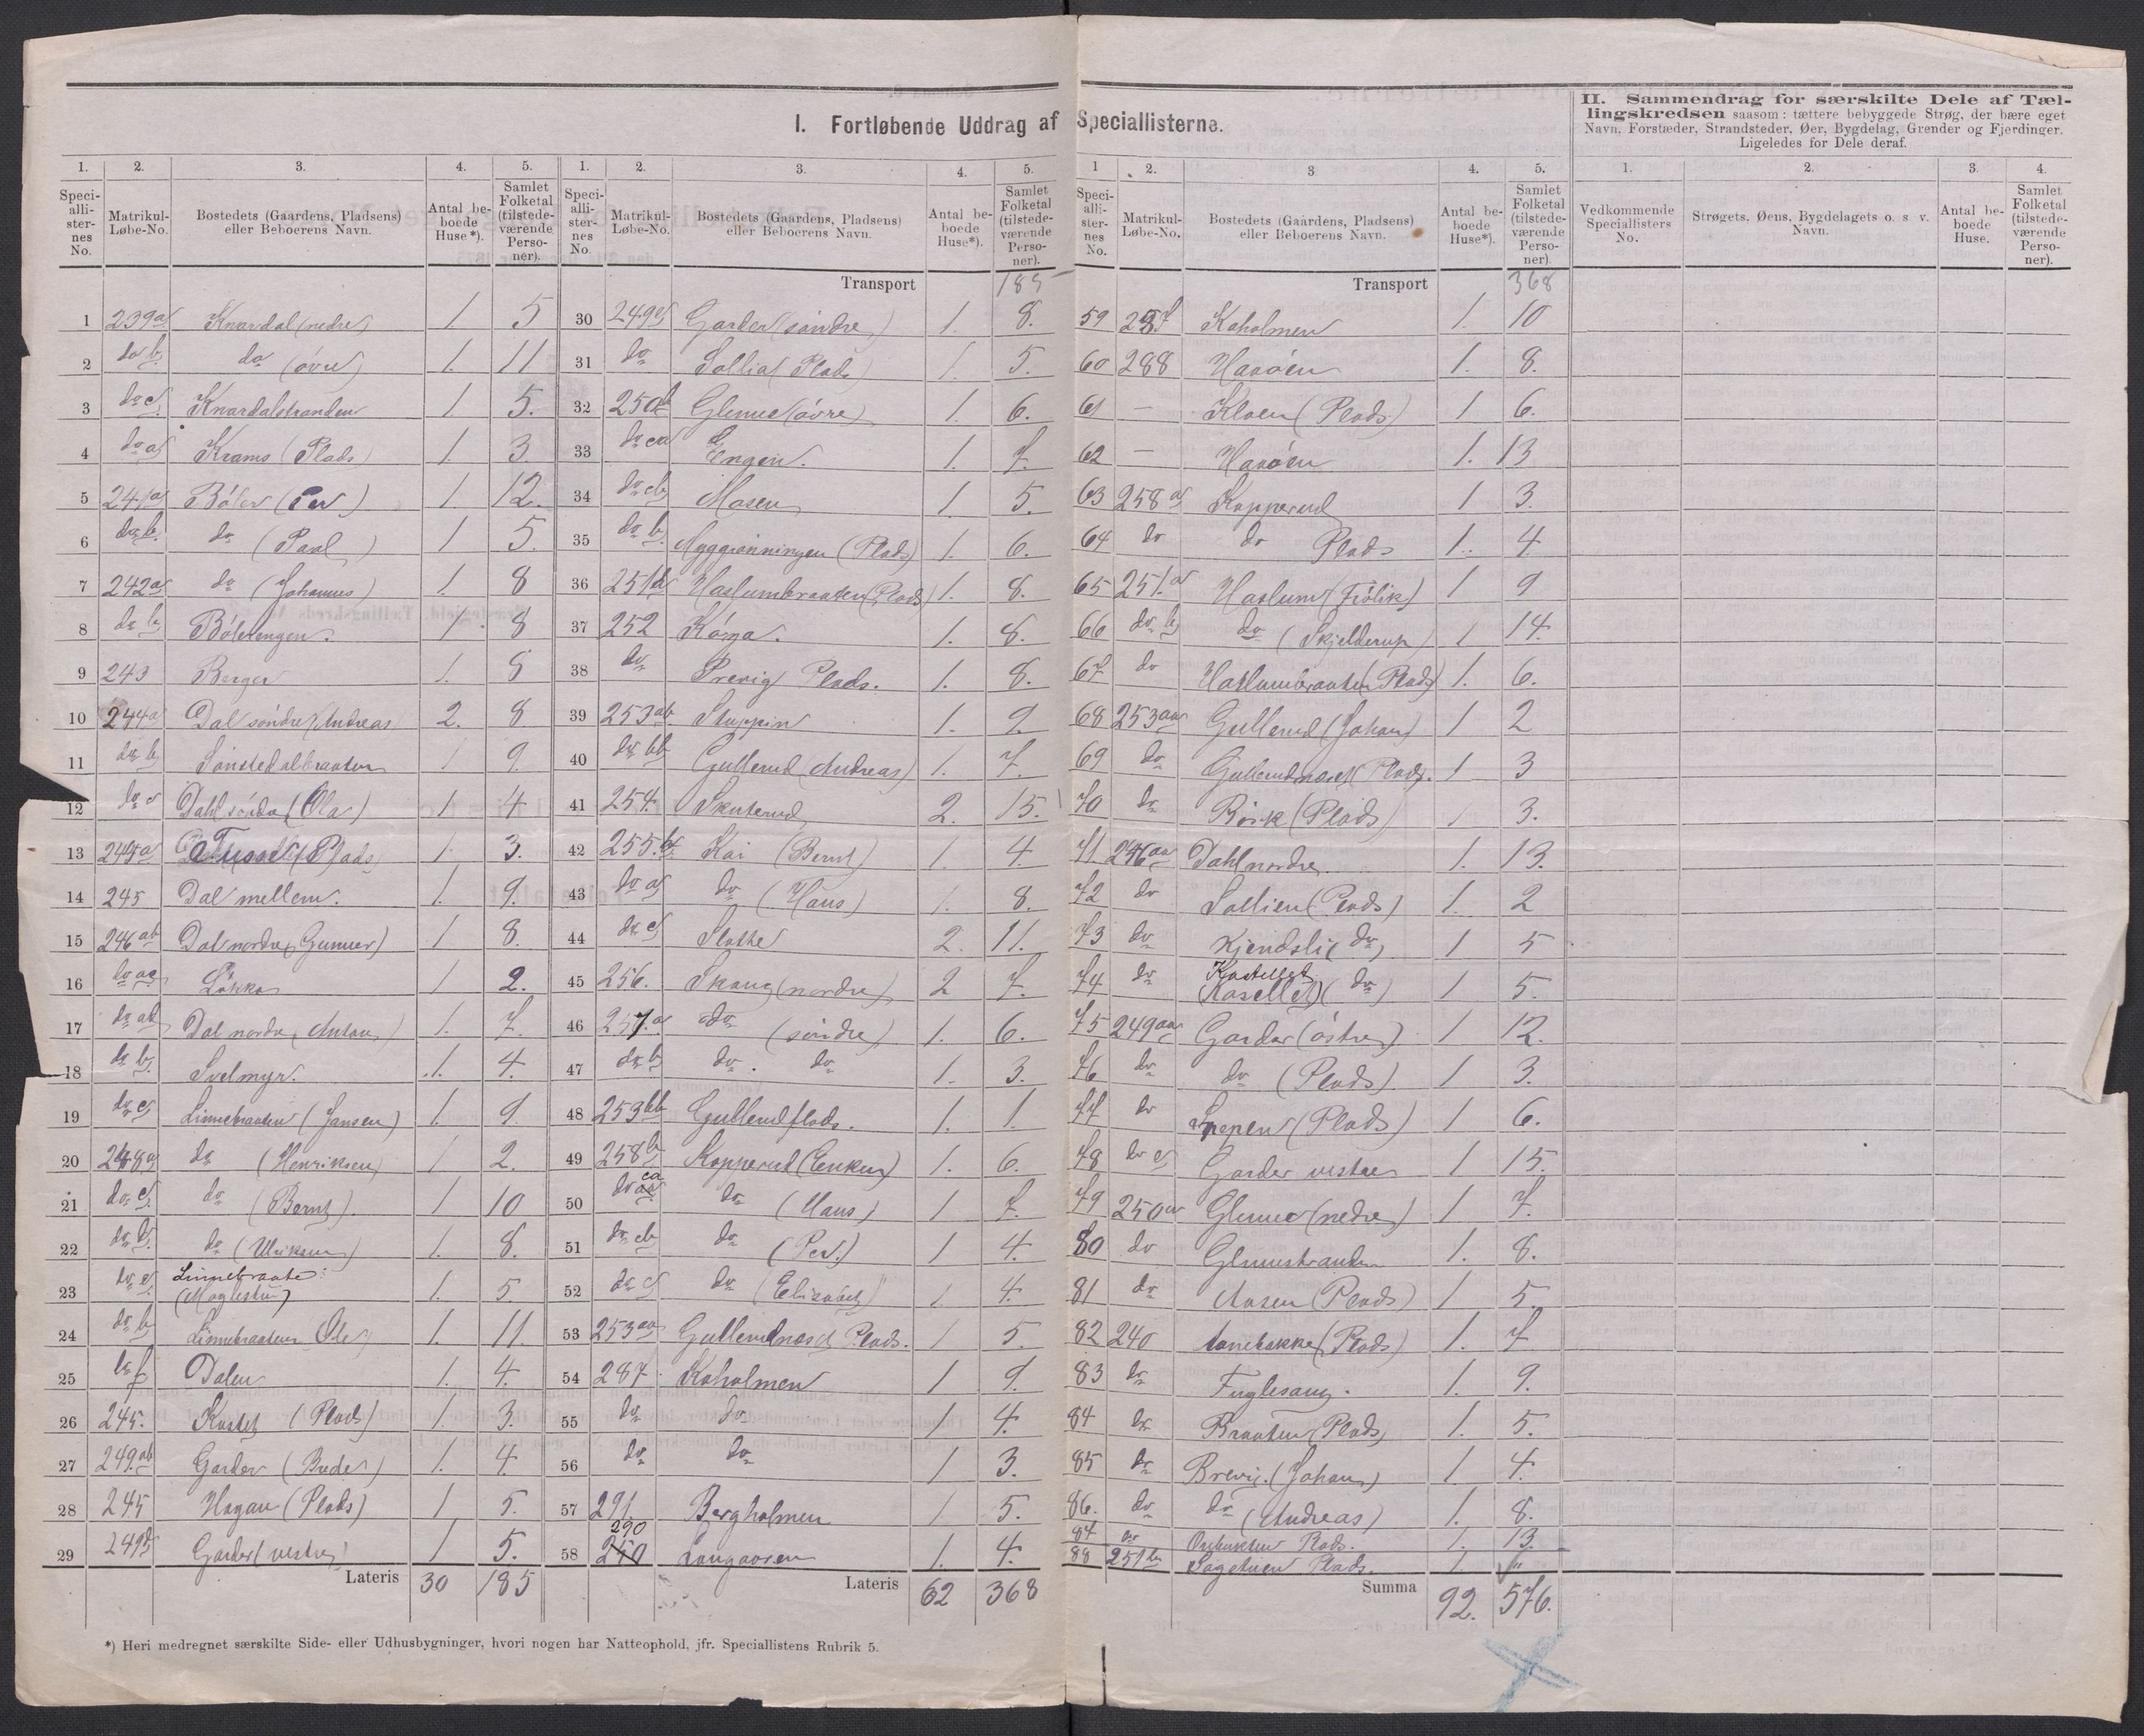 I. Fortløbende Uddrag af Speciallisterne.
II. Sammendrag for særskilte Dele af Tæl-
lingskredsen saasom: tættere bebyggede Strøg, der bære eget
Navn, Forstæder, Strandsteder, Øer, Bygdelag, Grender og Fjerdinger.
Ligeledes for Dele deraf.
1. 2. 3. 4. 5.
Speci-
alli-
ster-
nes
No.
Matrikul-
Løbe-No.
Bostedets (Gaardens, Pladsens)
eller Beboerens Navn.
Antal be-
boede
Huse*).
Samlet
Folketal
(tilstede-
værende
Perso-
ner).
1 239a Knardal (nedre) 1 5
2 do b do (øvre) 1. 11
3 do c Knardalstranden 1 5.
4 do a Krams (Plads) 1. 3
5 241a Böler (Per) 1 12.
6 do b do (Paal) 1 5.
7 242a do (Johannes) 1. 8
8 do b Bölerengen. 1 8
9 243 Berger 1.
10 244a Dal söndre (Andreas 2. 8
11 do b 1 9.
12 do c Dahl söndre (Ola) 1 4
13 (Plads) 1. 3.
14 245 Dal mellem. 1. 9.
15 246ab Dal nordre (Gunner) 1 8.
16 do aa Lökka 1 2.
17 do ab Dal nordre (Anton) 1. 7.
18 do b. Svelmyr. 1. 4.
19 do c Linnebraaten (Jansen) 1. 9
20 248a do (Henriksen) 1 2.
21 do c. do (Bernt). 1 10
22 do b. do (Ulriksen) 1. 8.
23 do Linnebraate: 1. 5
24 do b Linnebraaten Ole 1. 11.
25 do f Dalen 1. 4.
26 245. (Plads) 1. 3.
27 249.ab Garder (Brede) 1. 4.
28 245 Hagan (Plads) 1 5.
29 249 Garder (vestre) 1 5.
Lateris 30 185
1. 2. 3. 4. 5.
Speci-
alli-
ster-
nes
No.
Matrikul-
Løbe-No.
Bostedets (Gaardens, Pladsens)
eller Beboerens Navn.
Antal be-
boede
Huse*).
Samlet
Folketal
(tilstede-
værende
Perso-
ner).
Transport 185
30 249 Garder (söndre) 1. 8.
31 do Sollia (Plads) 1. 5.
32 250 Glenne (övre) 1. 6.
33 do ca Engen. 1. 7.
34 do cb Mosen 1 5.
35 do b Nyggrönningen (Plads) 1. 6.
36 251b Haslumbraaten (Plads) 1. 8.
37 252 1. 8.
38 do Plads. 1. 8.
39 253ab 1. 9.
40 do bb Gullerud (Andreas) 1. 7.
41 254. Skuterud 2. 15.
42 255. Kai (Bernt) 1. 4
43 do a do (Hans) 1. 8.
44 do c Slotte 2. 11.
45 256. Skaug (nordre) 2 7.
46 257.a do (söndre) 1. 6.
47 do b do. do 1. 3.
48 253bb Gullerud plads. 1. 1.
49 258b Kopperud (Enken) 1. 6.
50 do ca do (Hans) 1 7.
51 do cb do (Per.) 1 4.
52 do c do (Elisabeth) 1 4.
53 253aa Gullerudnæset Plads. 1 5.
54 287. Kaholmen 1 9.
55 do do 1 4.
56 do do 1 3.
57 291 Bergholmen 1 5.
58 290 Langaaren 1. 4.
Lateris 62 368
1 2. 3 4. 5.
Speci-
alli-
ster-
nes
No.
Matrikul-
Løbe-No.
Bostedets (Gaardens, Pladsens)
eller Beboerens Navn.
Antal be-
boede
Huse*).
Samlet
Folketal
(tilstede-
værende
Perso-
ner)
Transport 368
59 287 Kaholmen 1. 10
60 288 Haaöen 1. 8.
61 — Kloen (Plads) 1 6.
62 — Haaöen 1. 13
63 258a Kopperud 1 3.
64 do do Plads 1. 4.
65 251.a Haslum (Frölik) 1 9
66 do b do (Skjelderup) 1 14.
67 do Haslumbraaten (Plads) 1. 6.
68 253aa Gullerud (Johan) 1 2
69 do Gullerudnæset (Plads). 1 3
70 do Börk (Plads) 1 3.
71 246aa Dahl nordre. 1. 13.
72 do Sollien (Plads) 1. 2
73 do Kjendsli (do) 1 5
74 do Kastellet (Kasellet) (do) 1 5.
75 249aa Garder (östre) 1 12.
76 do do (Plads) 1 3.
77 do (Plads) 1 6.
78 do c Garder vestre 1 15.
79 250a Glenne (nedre) 1 7.
80 do Glennestranden 1. 8.
81 do Aasen (Plads) 1 5
82 240 (Plads) 1. 7
83 do Fuglesang. 1. 9.
84 do Braaten (Plads) 1. 5.
85 do Brevig. (Johan) 1 4.
86. do do (Andreas) 1. 8.
87 do Plads. 1. 13.
88 251 b Sagstuen Plads. 1. "
Summa 92. 576.
1. 2. 3. 4.
Vedkommende
Speciallisters
No.
Strøgets, Øens, Bygdelagets o. s v.
Navn.
Antal be-
boede
Huse.
Samlet
Folketal
(tilstede-
værende
Perso-
ner).
*) Heri medregnet særskilte Side- eller Udhusbygninger, hvori nogen har Natteophold, jfr. Speciallistens Rubrik 5.